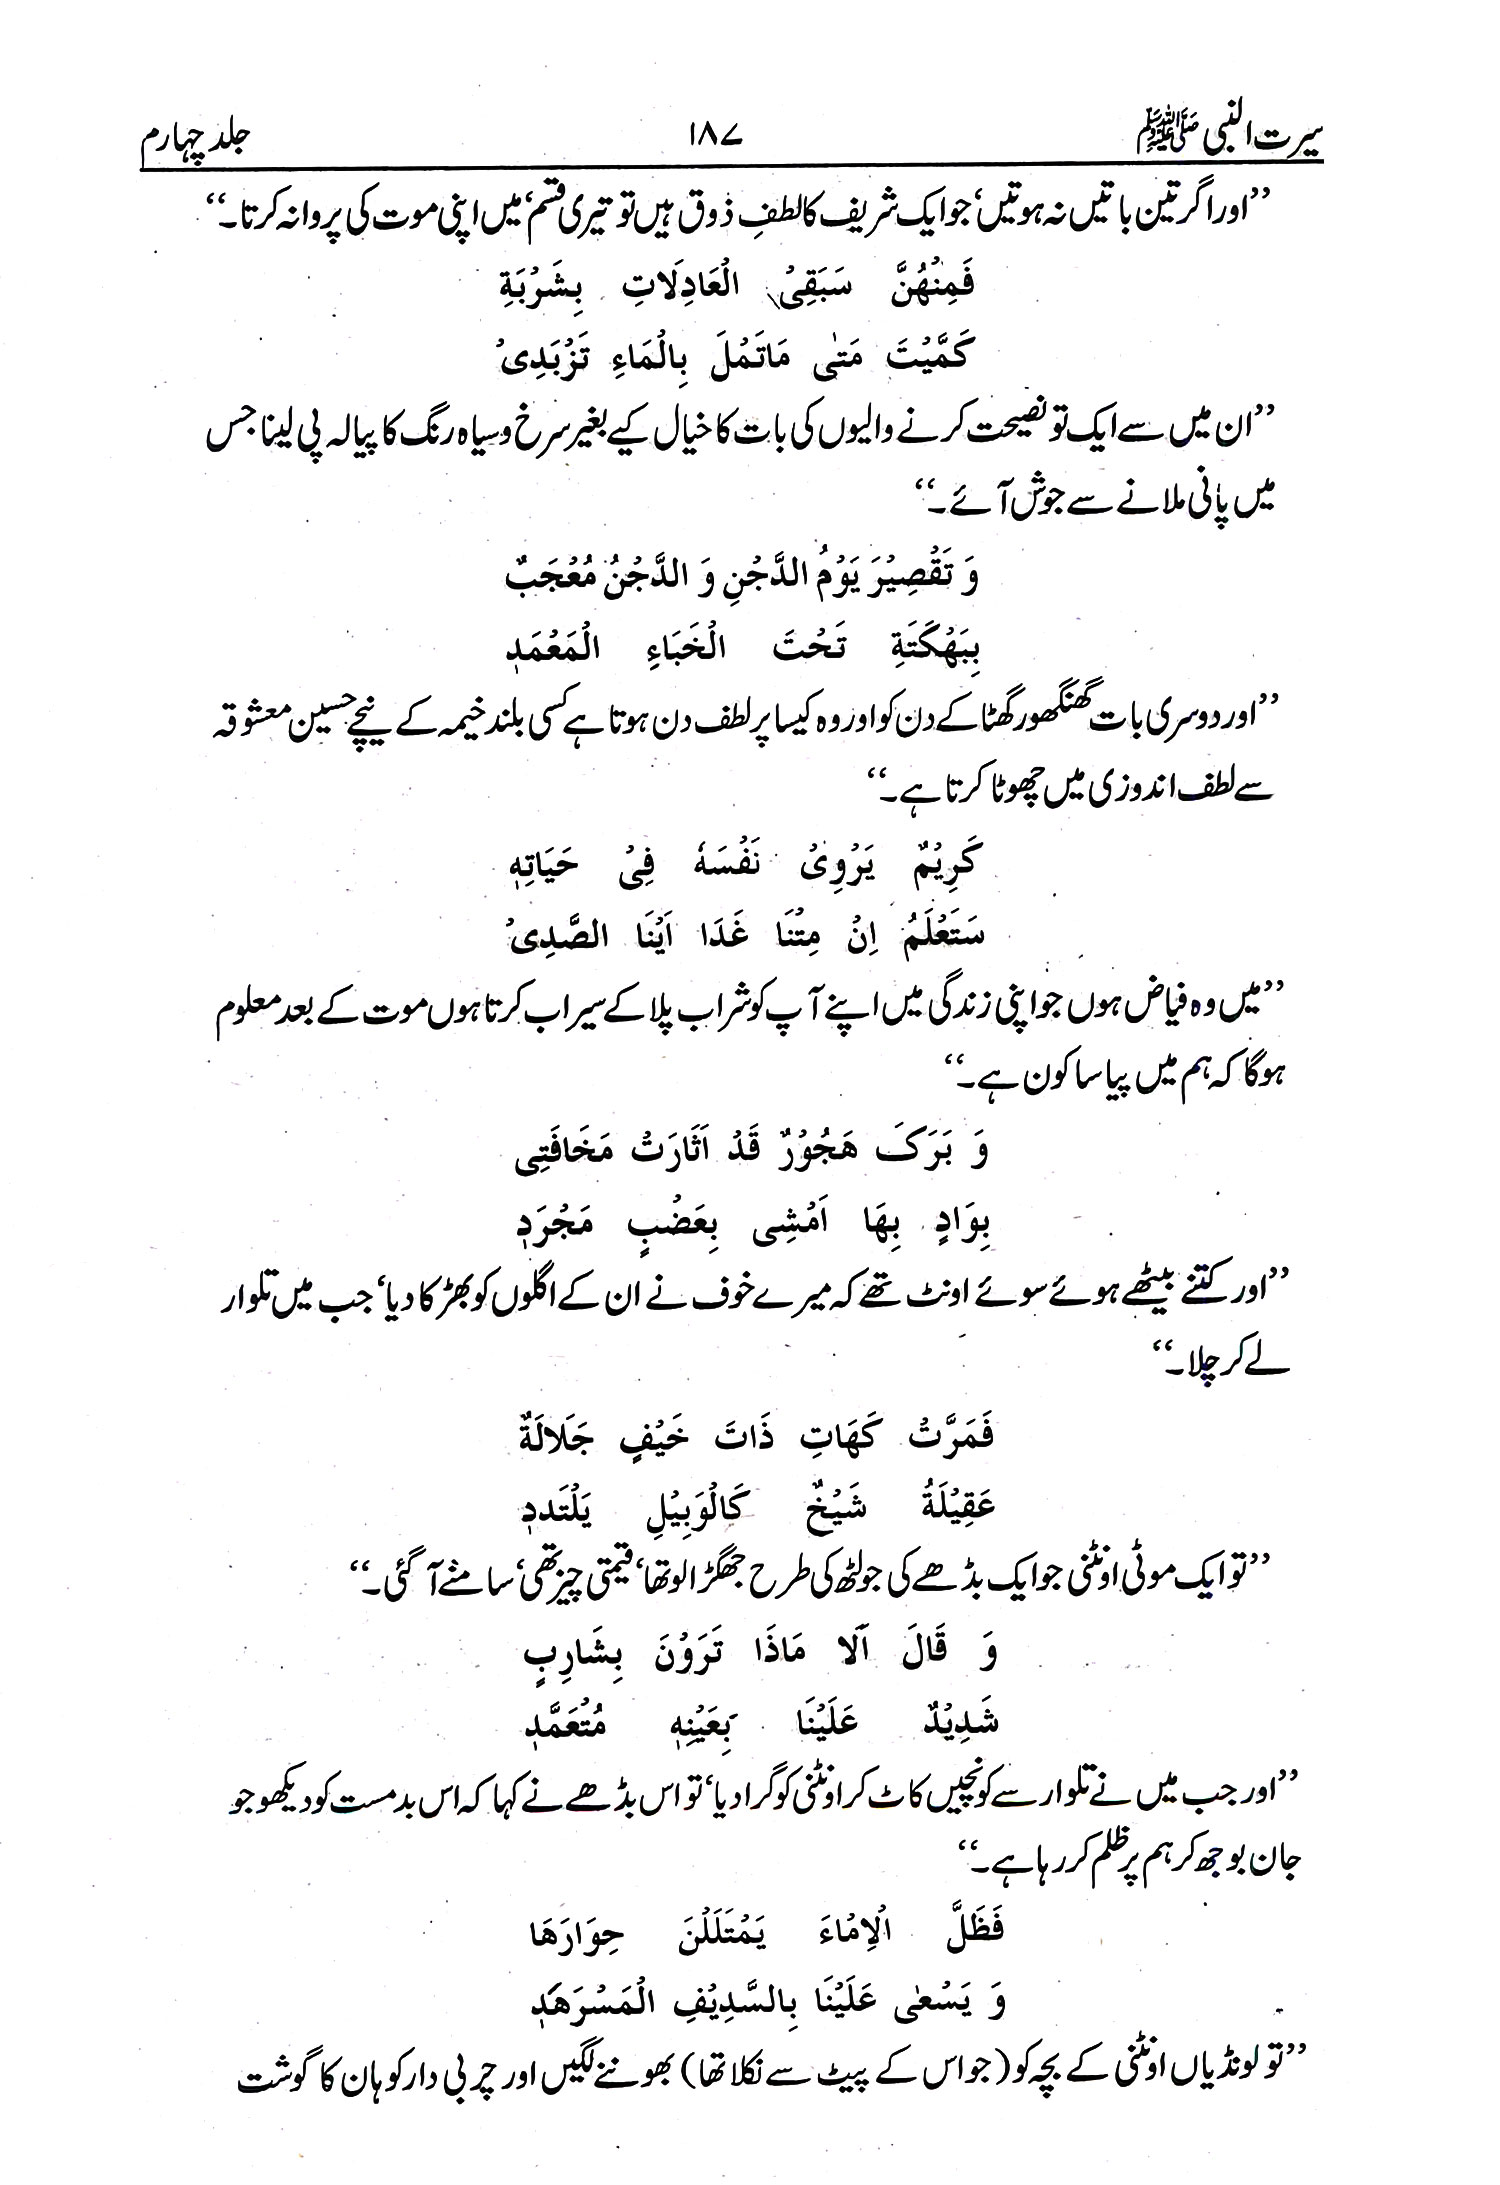 سیرت النبی ﷺ ۱۸۷ جلد چہارم
’’اور اگر تین باتیں نہ ہوتیں‘ جو ایک شریف کا لطفِ ذوق ہیں تو تیری قسم‘ میں اپنی موت کی پروا نہ کرتا۔‘‘
فَمِنْهُنَّ سَبَقِیْ الْعَادِلَاتِ بِشَرْبَةِ
كَمَّيْتَ مَتٰى مَاتَمْلَ بِالْمَاءِ تَزْبَدِیْ
’’ان میں سے ایک تو نصیحت کرنے والیوں کی بات کا خیال کیے بغیر سرخ و سیاہ رنگ کا پیالہ پی لینا جس
میں پانی ملانے سے جوش آئے۔‘‘
وَ تَقْصِيْرَ يَوْمُ الدَّجْنِ وَ الدَّجْنُ مُعْجَبٌ
بِبَهْكَتَةِ تَحْتَ الْخَبَاءِ الْمَعْمَدِ
’’اور دوسری بات گھنگھور گھٹا کے دن کو اور وہ کیسا پر لطف دن ہوتا ہے کسی بلند خیمہ کے نیچے حسین معشوقہ
سے لطف اندوزی میں چھوٹا کرتا ہے۔‘‘
كَرِيْمٌ يَرْوِیْ نَفْسَهٗ فِیْ حَيَاتِهٖ
سَتَعْلَمُ اِنْ مِتْنَا غَدَا اَيْنَا الصَّدِیْ
’’میں وہ فیاض ہوں جو اپنی زندگی میں اپنے آپ کو شراب پلا کے سیراب کرتا ہوں موت کے بعد معلوم
ہوگا کہ ہم میں پیاسا کون ہے۔‘‘
وَ بَرَكَ هَجُوْرٌ قَدْ اَثَارَتْ مَخَافَتِی
بِوَادٍ بِهَا اَمْشِی بِعَضْبٍ مَجْرَدٖ
’’اور کتنے بیٹھے ہوئے سوئے اونٹ تھے کہ میرے خوف نے ان کے اگلوں کو بھڑکا دیا‘ جب میں تلوار
لے کر چلا۔‘‘
فَمَرَّتْ كَهَاتِ ذَاتَ خَيْفٍ جَلَالَةٌ
عَقِيْلَةُ شَيْخٌ كَالْوَبِيْلِ يَلْتَددٖ
’’تو ایک موٹی اونٹنی جو ایک بڈھے کی جو لٹھ کی طرح جھگڑالو تھا‘ قیمتی چیز تھی‘ سامنے آ گئی۔‘‘
وَ قَالَ اَلَا مَاذَا تَرَوْنَ بِشَارِبٍ
شَدِيْدٌ عَلَيْنَا بَعَيْنِهٖ مُتْعَمَّدٖ
’’اور جب میں نے تلوار سے کونچیں کاٹ کر اونٹنی کو گرا دیا‘ تو اس بڈھے نے کہا کہ اس بدمست کو دیکھو جو
جان بوجھ کر ہم پر ظلم کر رہا ہے۔‘‘
فَظَلَّ الْاِمْاءَ يَمْتَلَلْنَ حِوَارَهَا
وَ يَسْعٰى عَلَيْنَا بِالسَّدِيْفِ الْمَسْرَهَدٖ
’’تو لونڈیاں اونٹنی کے بچہ کو (جو اس کے پیٹ سے نکلا تھا) بھوننے لگیں اور چربی دار کوہان کا گوشت